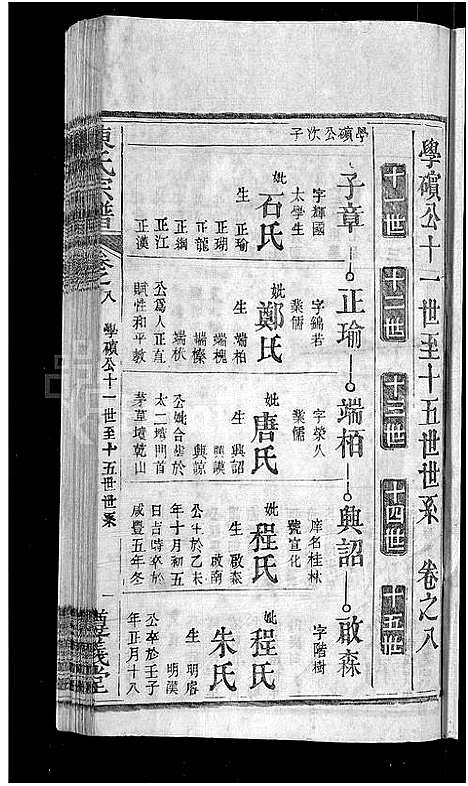 學礦公十一世至十五世世系 卷之八
十一世 十二世 十三世 十四世 十五世
子章 正瑜 端柏 興詔 啟森
學礦公次子
字輝國
太學生
妣石氏
生 正瑜
正瑚
正龍
正綱
正江
正漢
字錦若
業儒
妣鄭氏
生 端柏
端槐
端榛
端
公為人正直
賦性和平教
字榮八
業儒
妣唐氏
生 興詔
興謨
興諒
公妣合塋於
太二壋門首
茅草壋乾山
庠名桂林
號宣化
妣程氏
生 啟森
啟南
公生於乙未
年十月初五
日吉時卒於
咸豐五年冬
字階樹
妣程氏
朱氏
生 明廕
明漢
公卒於壬子
年正月十八
陳氏宗譜 卷之八 學礦公十一世至十五世世系 一 義堂